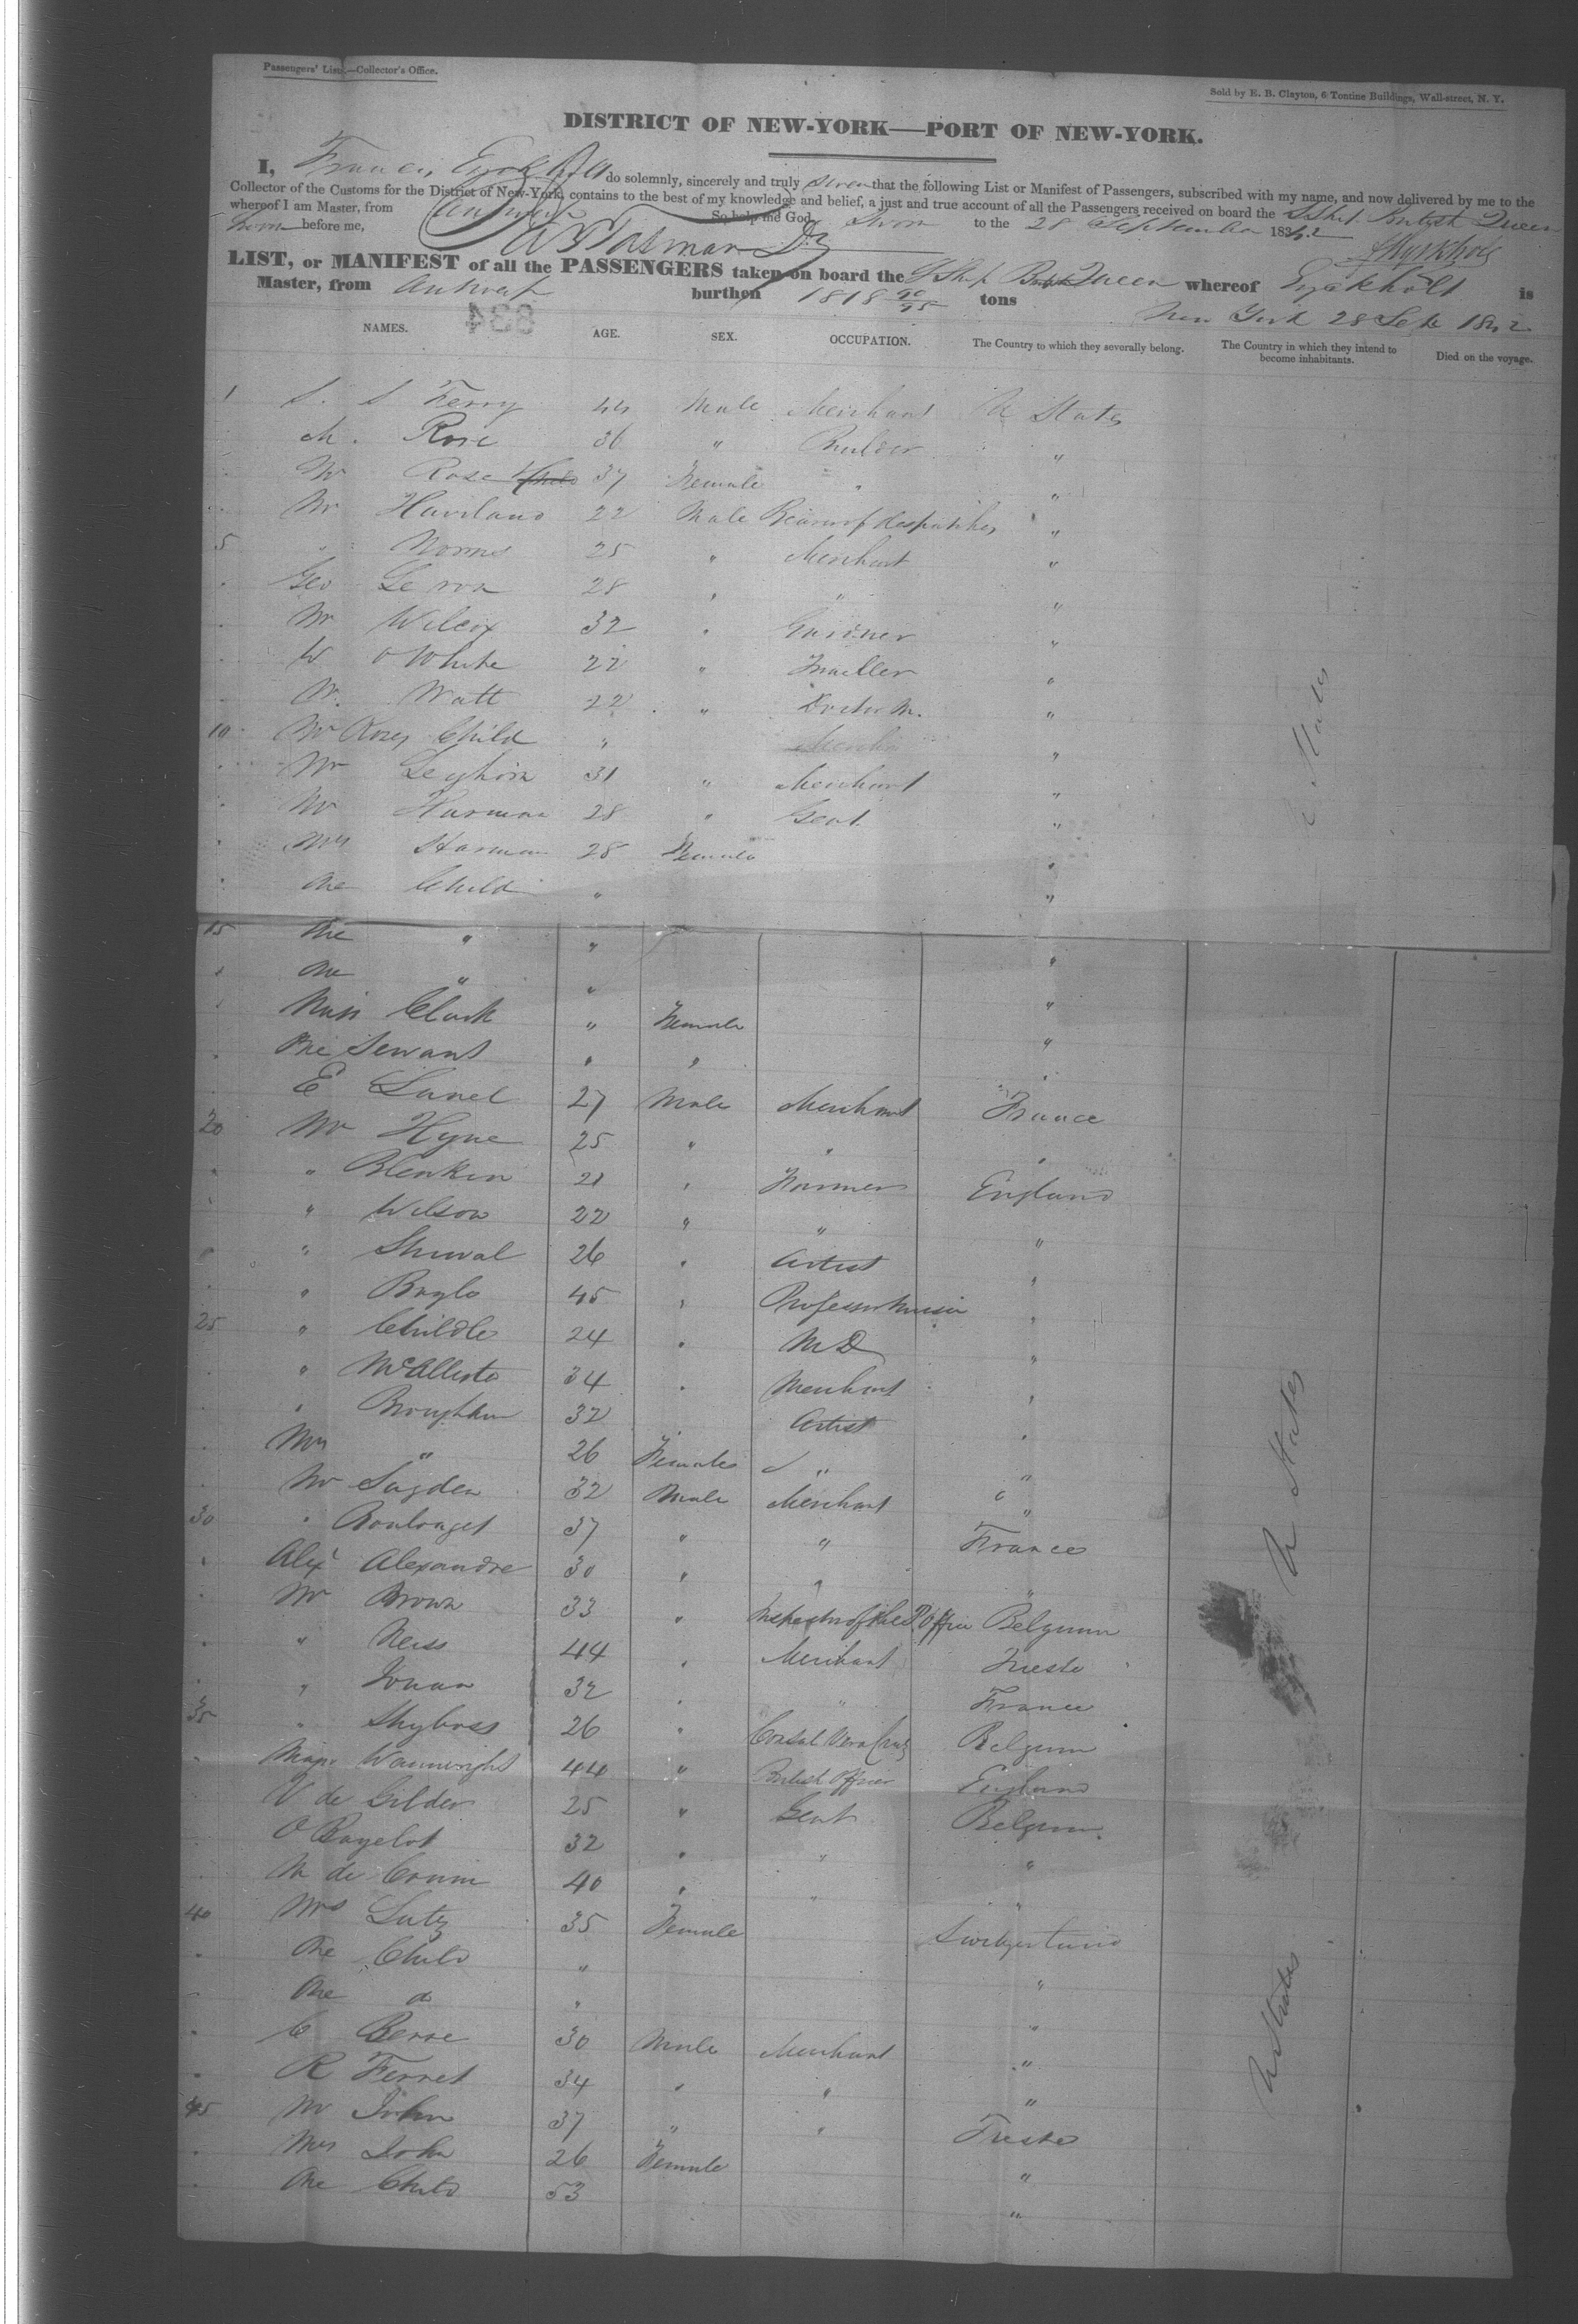 Passengers' List.—Collector's Office.
Sold by E. B. Clayton, 6 Tontine Buildings, Wall-street, N. Y.
DISTRICT OF NEW-YORK—PORT OF NEW-YORK.
I, Francis Eyckholt do solemnly, sincerely and truly swear that the following List or Manifest of Passengers, subscribed with my name, and now delivered by me to the
Collector of the Customs for the District of New-York, contains to the best of my knowledge and belief, a just and true account of all the Passengers received on board the S Ship British Queen
whereof I am Master, from Antwerp So help me God. Sworn to the 28 September 1842
before me,
LIST, or MANIFEST of all the PASSENGERS taken on board the S Ship British Queen whereof Eyckholt is
Master, from Antwerp burthen 1818 tons New York 28 Sept 1842
834
NAMES. AGE. SEX. OCCUPATION. The Country to which they severally belong. The Country in which they intend to become inhabitants. Died on the voyage.
1 S. S Ferry 44 Male Merchant U States
M. Rose 36 " Builder "
Rose 37 Female " "
Mr Haviland 22 Male Bearer of despatches "
5 " Norris 25 " Merchant "
Geo 28 " " "
Mr Wilcox 32 " Gardner "
W O White 22 " "
Watt 22 " "
10 Child " "
Mr Leghorn 31 " Merchant "
Mr Harman 28 " Gent. "
Mrs Harman 28 Female "
One Child " "
15 One " " "
One " " "
Miss Clark " Female "
One Servant " " "
E Lanel 27 Male Merchant France
20 Mr Hyne 25 " " "
" Blenkin 21 " Farmer England
" Wilson 22 " " "
" 26 " Artist "
" 45 " Professor Music "
25 " Childe 24 " MD "
" McAllister 34 " Merchant "
" Brougham 32 " Artist "
Mrs " 26 Female " "
Mr Sugden 32 Male Merchant "
30 " 37 " " France
Alex Alexandre 30 " " "
Mr Brown 33 " Inspector of the P. Office Belgium
" Neiss 44 " Merchant Trieste
" 32 " " France
35 " 26 " Consul Vera Cruz Belgium
Major Wainwright 44 " British Officer England
V de Gilder 25 " Gent Belgium
O 32 " " "
40 " " "
40 Mrs Lutz 35 Female Switzerland
One Child " "
One do " "
C 30 Male Merchant "
R Ferret 34 " " "
45 Mr John 37 " " Trieste
Mrs John 26 Female "
One Child 53 "
U States
U States
U States